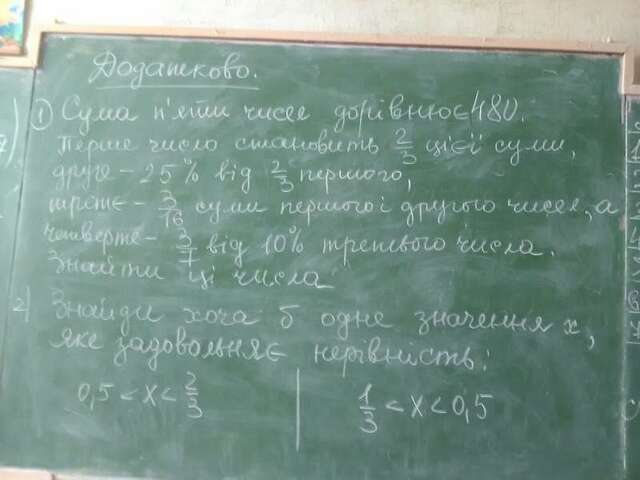 Додатково.
1 Сума п'яти чисел дорівнює 480.
Перше число становить 2/3 цієї суми,
друге - 25% від 2/3 першого,
третє - 3/16 суми першого і другого чисел, а
четверте - 3/7 від 10% третього числа.
Знайти ці числа
2) Знайди хоча б одне значення x,
яке задовольняє нерівність:
0,5 < x < 2/3
1/3 < x < 0,5